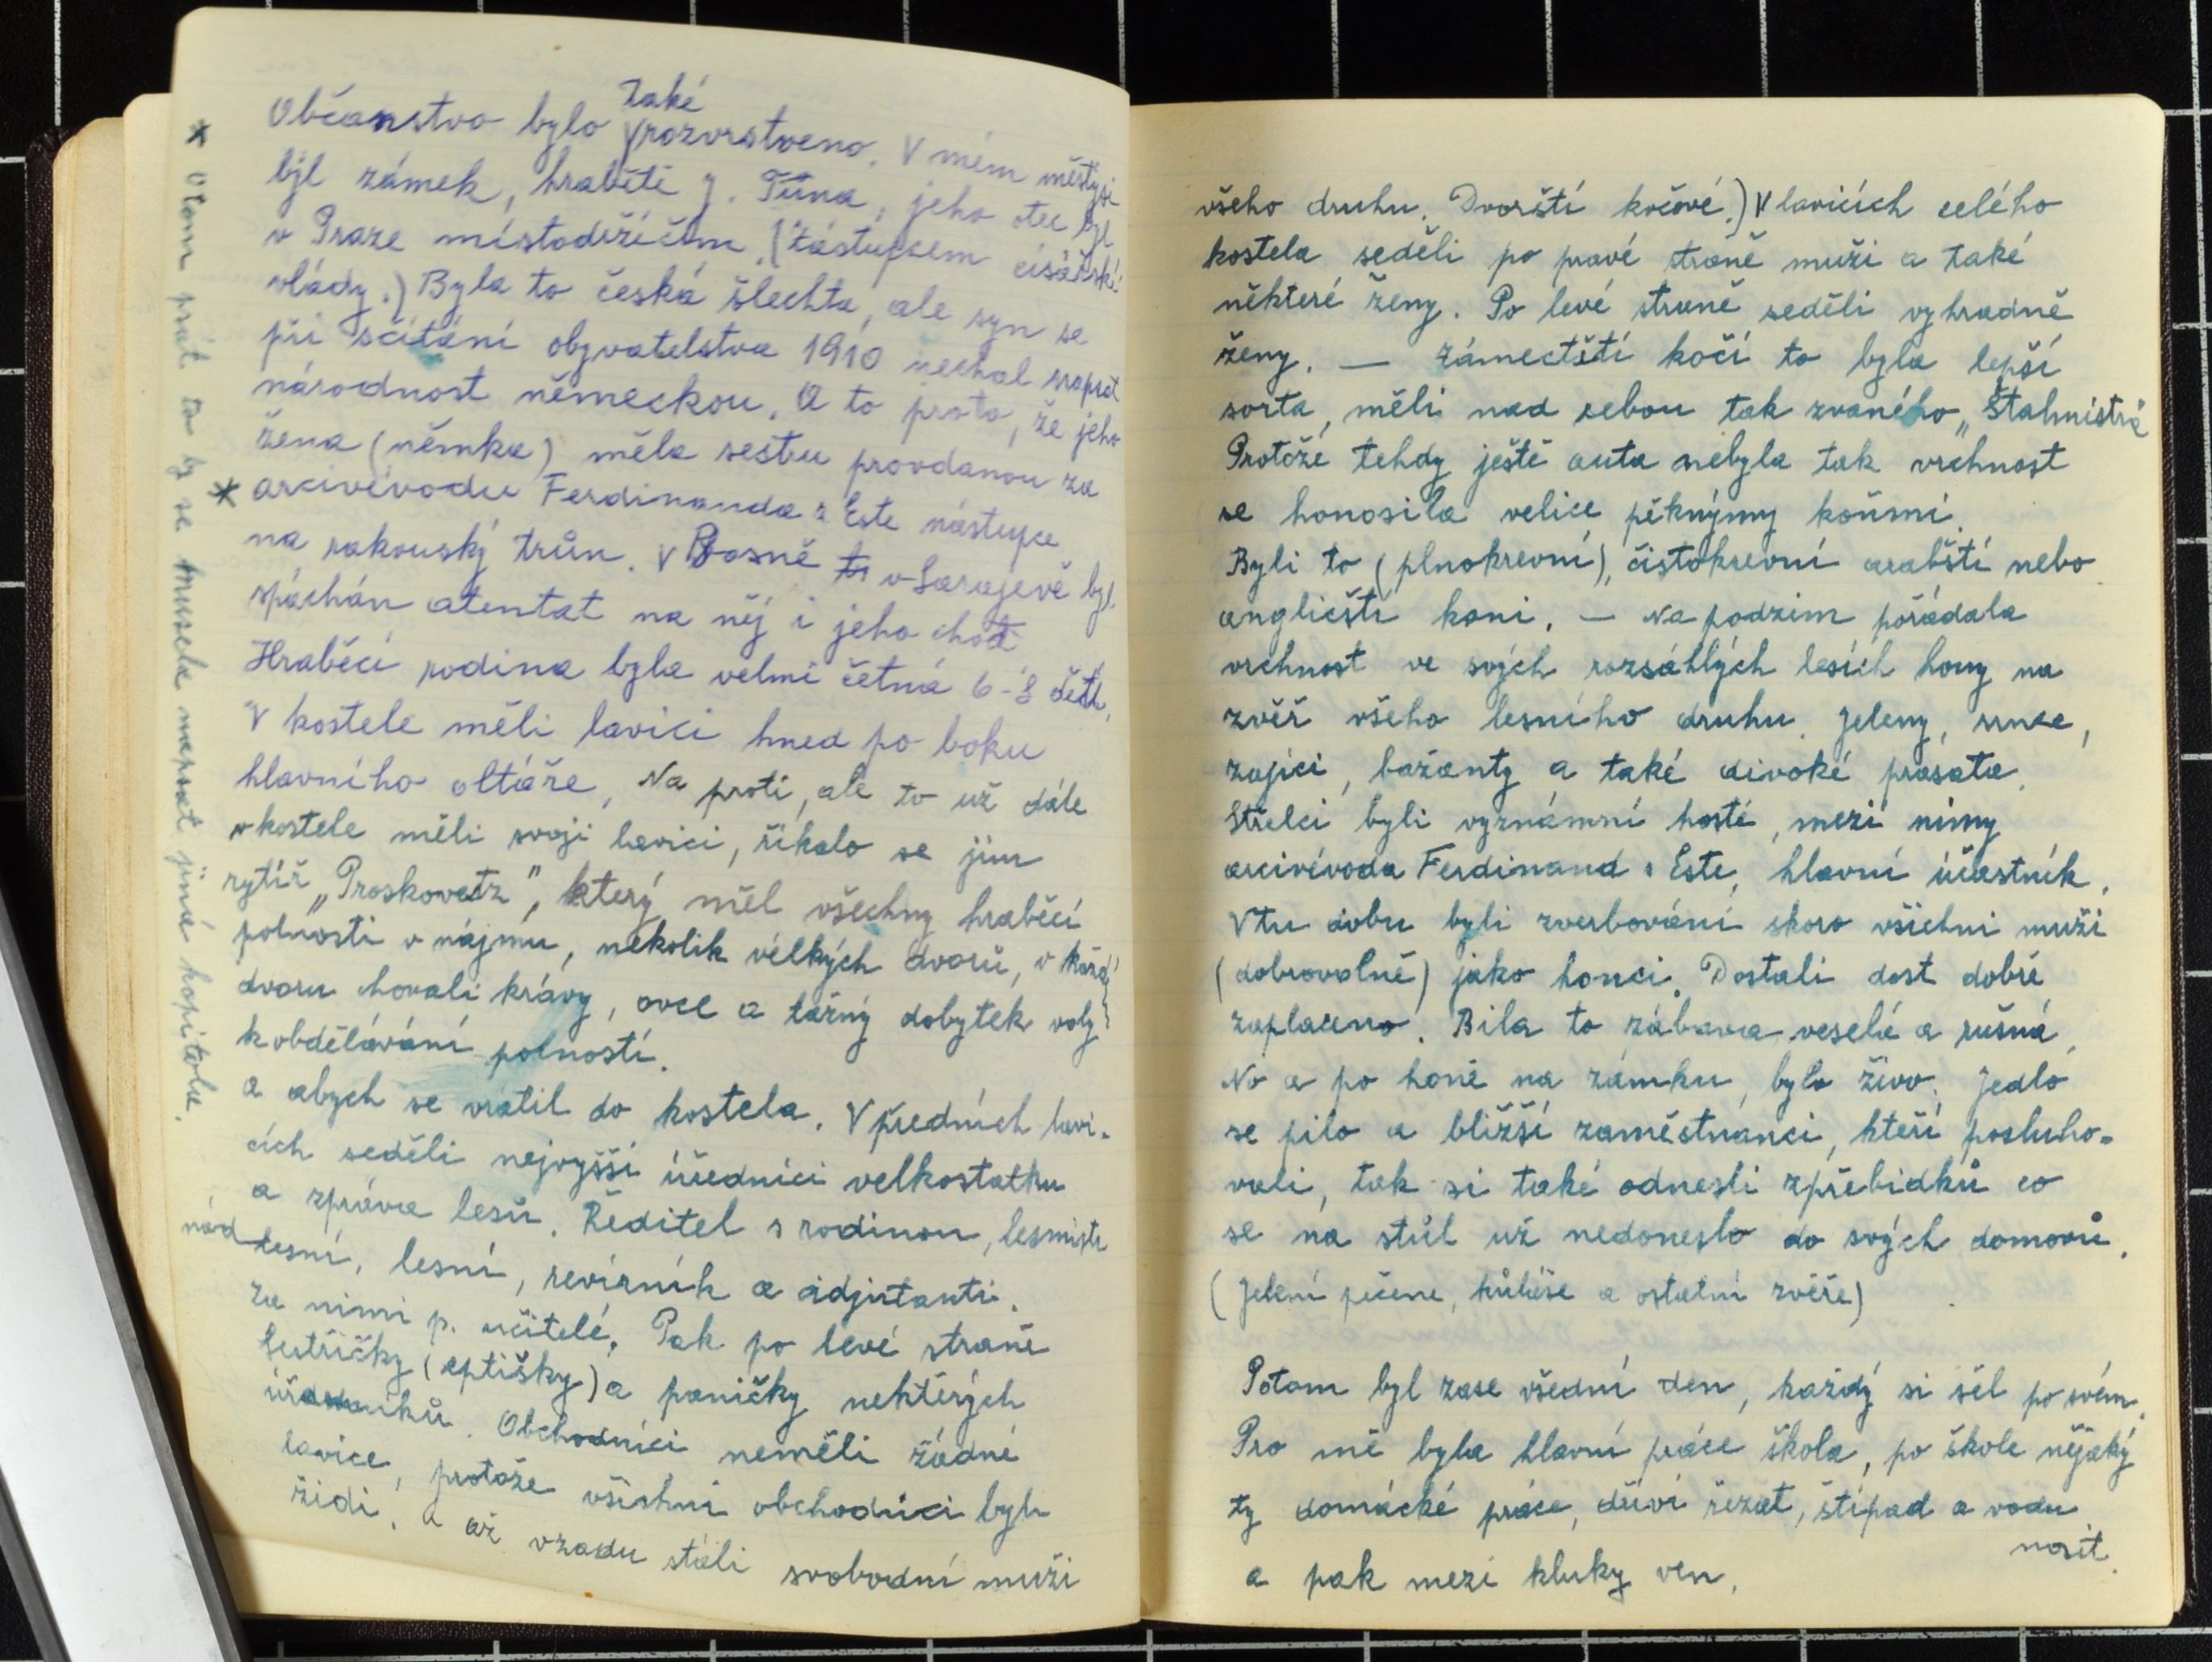 Také
Občanstvo bylo rozvrstveno. V mém městysi
byl zámek, hraběte J. Tůna, jeho otec byl
v Praze místodržícím, (zástupcem císařské
vlády.) Byla to česká šlechta, ale syn se
při sčítání obyvatelstva 1910 nechal zapsat
národnost německou. A to proto, že jeho
žena (němka) měla sestru provdanou za
* arcivévodu Ferdinanda z Este nástupce
na rakouský trůn. V Bosně v Sarajevě byl
spáchán atentat na něj i jeho choť
Hraběcí rodina byla velmi četná 6-8 dětí.
V kostele měli lavici hned po boku
hlavního oltáře, Na proti, ale to už dále
v kostele měli svoji lavici, říkalo se jim
rytíř „Proskovetz", který měl všechny hraběcí
polnosti v nájmu, několik velkých dvorů, v každ
dvoru chovali krávy, ovce a tažný dobytek voly
k obdělávání polností.
a abych se vrátil do kostela. V předních lavi-
cích seděli nejvyšší úředníci velkostatku
a správa lesů. Ředitel s rodinou, lesmistr
nadlesní, lesní, revírník a adjutanti.
Za nimi p. učitelé. Pak po levé straně
Sestřičky (eptišky) a paničky nekterých
úředníků. Obchodníci neměli žádné
lavice, protože všichni obchodníci byli
židi. a až vzadu stáli svobodní muži
* O tom psát to by se musela napsat jiná kapitola.
všeho druhu. Dvorští kočové.) V lavicích celého
kostela seděli po pravé straně muži a také
některé ženy. Po levé straně seděli vyhradně
ženy. — Zámectští kočí to byla lepší
sorta, měli nad sebou tak zvaného „Štalmistra
Protože tehdy ještě auta nebyla tak vrchnost
se honosila velice pěknýmy koňmi.
Byli to (plnokrevní), čistokrevní arabští nebo
angličtí koni. — Na podzim pořádala
vrchnost ve svých rozsáhlých lesích hony na
zvěř všeho lesního druhu. Jeleny, srnce,
zajíci, bažanty a také divoké prasata.
Střelci byli význámní hosté, mezi nimy
arcivévoda Ferdinand s Este, hlavní účastník.
V tu dobu byli zverbováni skoro všichni muži
(dobrovolně) jako honci. Dostali dost dobře
zaplaceno. Bila to zábava veselá a rušná,
No a po honě na zámku, bylo živo. Jedlo
se pilo a bližší zaměstnanci, kteří posluho-
vali, tak si také odnesli zpřebidků co
se na stůl už nedoneslo do svých domovů.
(Jelení pečene, kůtáse a ostatní zvěře)
Potom byl zase všední den, každý si šel po svém.
Pro mě byla hlavní práce škola, po škole nějaký
ty domácké práce, dříví řezat, štípad a vodu
nosit.
a pak mezi kluky ven.